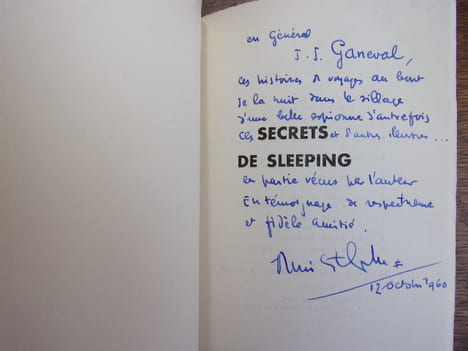 au Général
J. J. Ganeval,
ces histoires & voyages au bout
de la nuit dans le sillage
d'une belle espionne d'autrefois
ces SECRETS et d'autres illustres...
DE SLEEPING
en partie vécus par l'auteur
En témoignage de respectueuse
et fidèle amitié.
12 octobre 1960